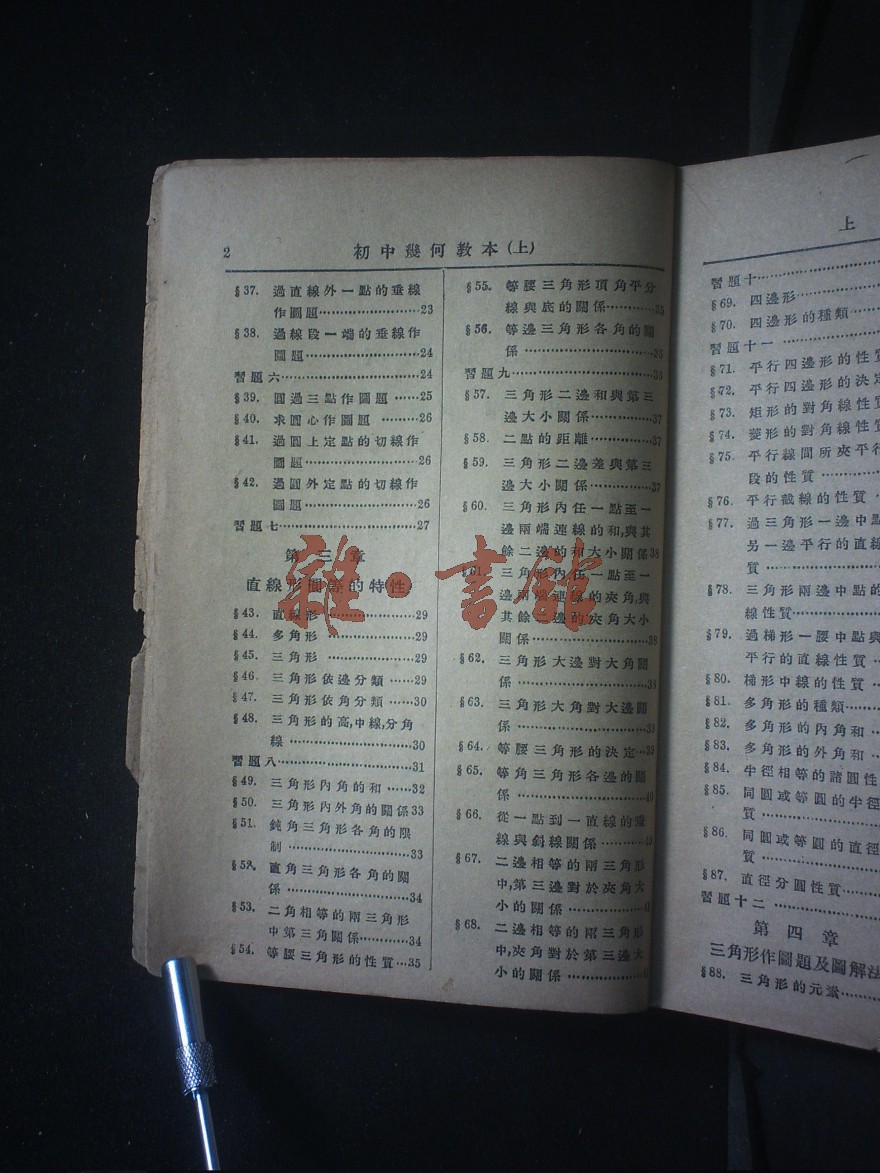 2
初中幾何教本(上)
§37. 過直線外一點的垂線
作圖題…………………23
§38. 過線段一端的垂線作
圖題…………………24
習題六…………………24
§39. 圓過三點作圖題……25
§40. 求圓心作圖題………26
§41. 過圓上定點的切線作
圖題…………………26
§42. 過圓外定點的切線作
圖題…………………26
習題七…………………27
第三章
直線形圖等的特性
§43. 直線形………………29
§44. 多角形………………29
§45. 三角形………………29
§46. 三角形依邊分類……29
§47. 三角形依角分類……30
§48. 三角形的高,中線,分角
線……………………30
習題八…………………31
§49. 三角形內角的和……32
§50. 三角形內外角的關係33
§51. 鈍角三角形各角的限
制……………………33
§52. 直角三角形各角的關
係……………………34
§53. 二角相等的兩三角形
中第三角關係………34
§54. 等腰三角形的性質…35
§55. 等腰三角形頂角平分
線與底的關係………35
§56. 等邊三角形各角的關
係……………………
習題九…………………36
§57. 三角形二邊和與第三
邊大小關係…………37
§58. 二點的距離…………37
§59. 三角形二邊差與第三
邊大小關係…………37
§60. 三角形內任一點至一
邊兩端連線的和,與其
餘二邊的和大小關係38
§61. 三角形內任一點至一
邊兩端連線的夾角,與
其餘二邊的夾角大小
關係…………………38
§62. 三角形大邊對大角關
係……………………38
§63. 三角形大角對大邊關
係……………………39
§64. 等腰三角形的決定…39
§65. 等角三角形各邊的關
係……………………40
§66. 從一點到一直線的垂
線與斜線關係………40
§67. 二邊相等的兩三角形
中,第三邊對於夾角大
小的關係……………
§68. 二邊相等的兩三角形
中,夾角對於第三邊大
小的關係……………
雜·書館
上
習題十…………
§69. 四邊形…………
§70. 四邊形的種類……
習題十一…………
§71. 平行四邊形的性質
§72. 平行四邊形的決定
§73. 矩形的對角線性質
§74. 菱形的對角線性質
§75. 平行線間所夾平行
段的性質…………
§76. 平行截線的性質…
§77. 過三角形一邊中點
另一邊平行的直線
質…………
§78. 三角形兩邊中點的
線性質…………
§79. 過梯形一腰中點與
平行的直線性質…
§80. 梯形中線的性質…
§81. 多角形的種類……
§82. 多角形的內角和…
§83. 多角形的外角和…
§84. 半徑相等的諸圓性
§85. 同圓或等圓的半徑
質…………
§86. 同圓或等圓的直徑
質…………
§87. 直徑分圓性質……
習題十二…………
第四章
三角形作圖題及圖解法
§88. 三角形的元素……